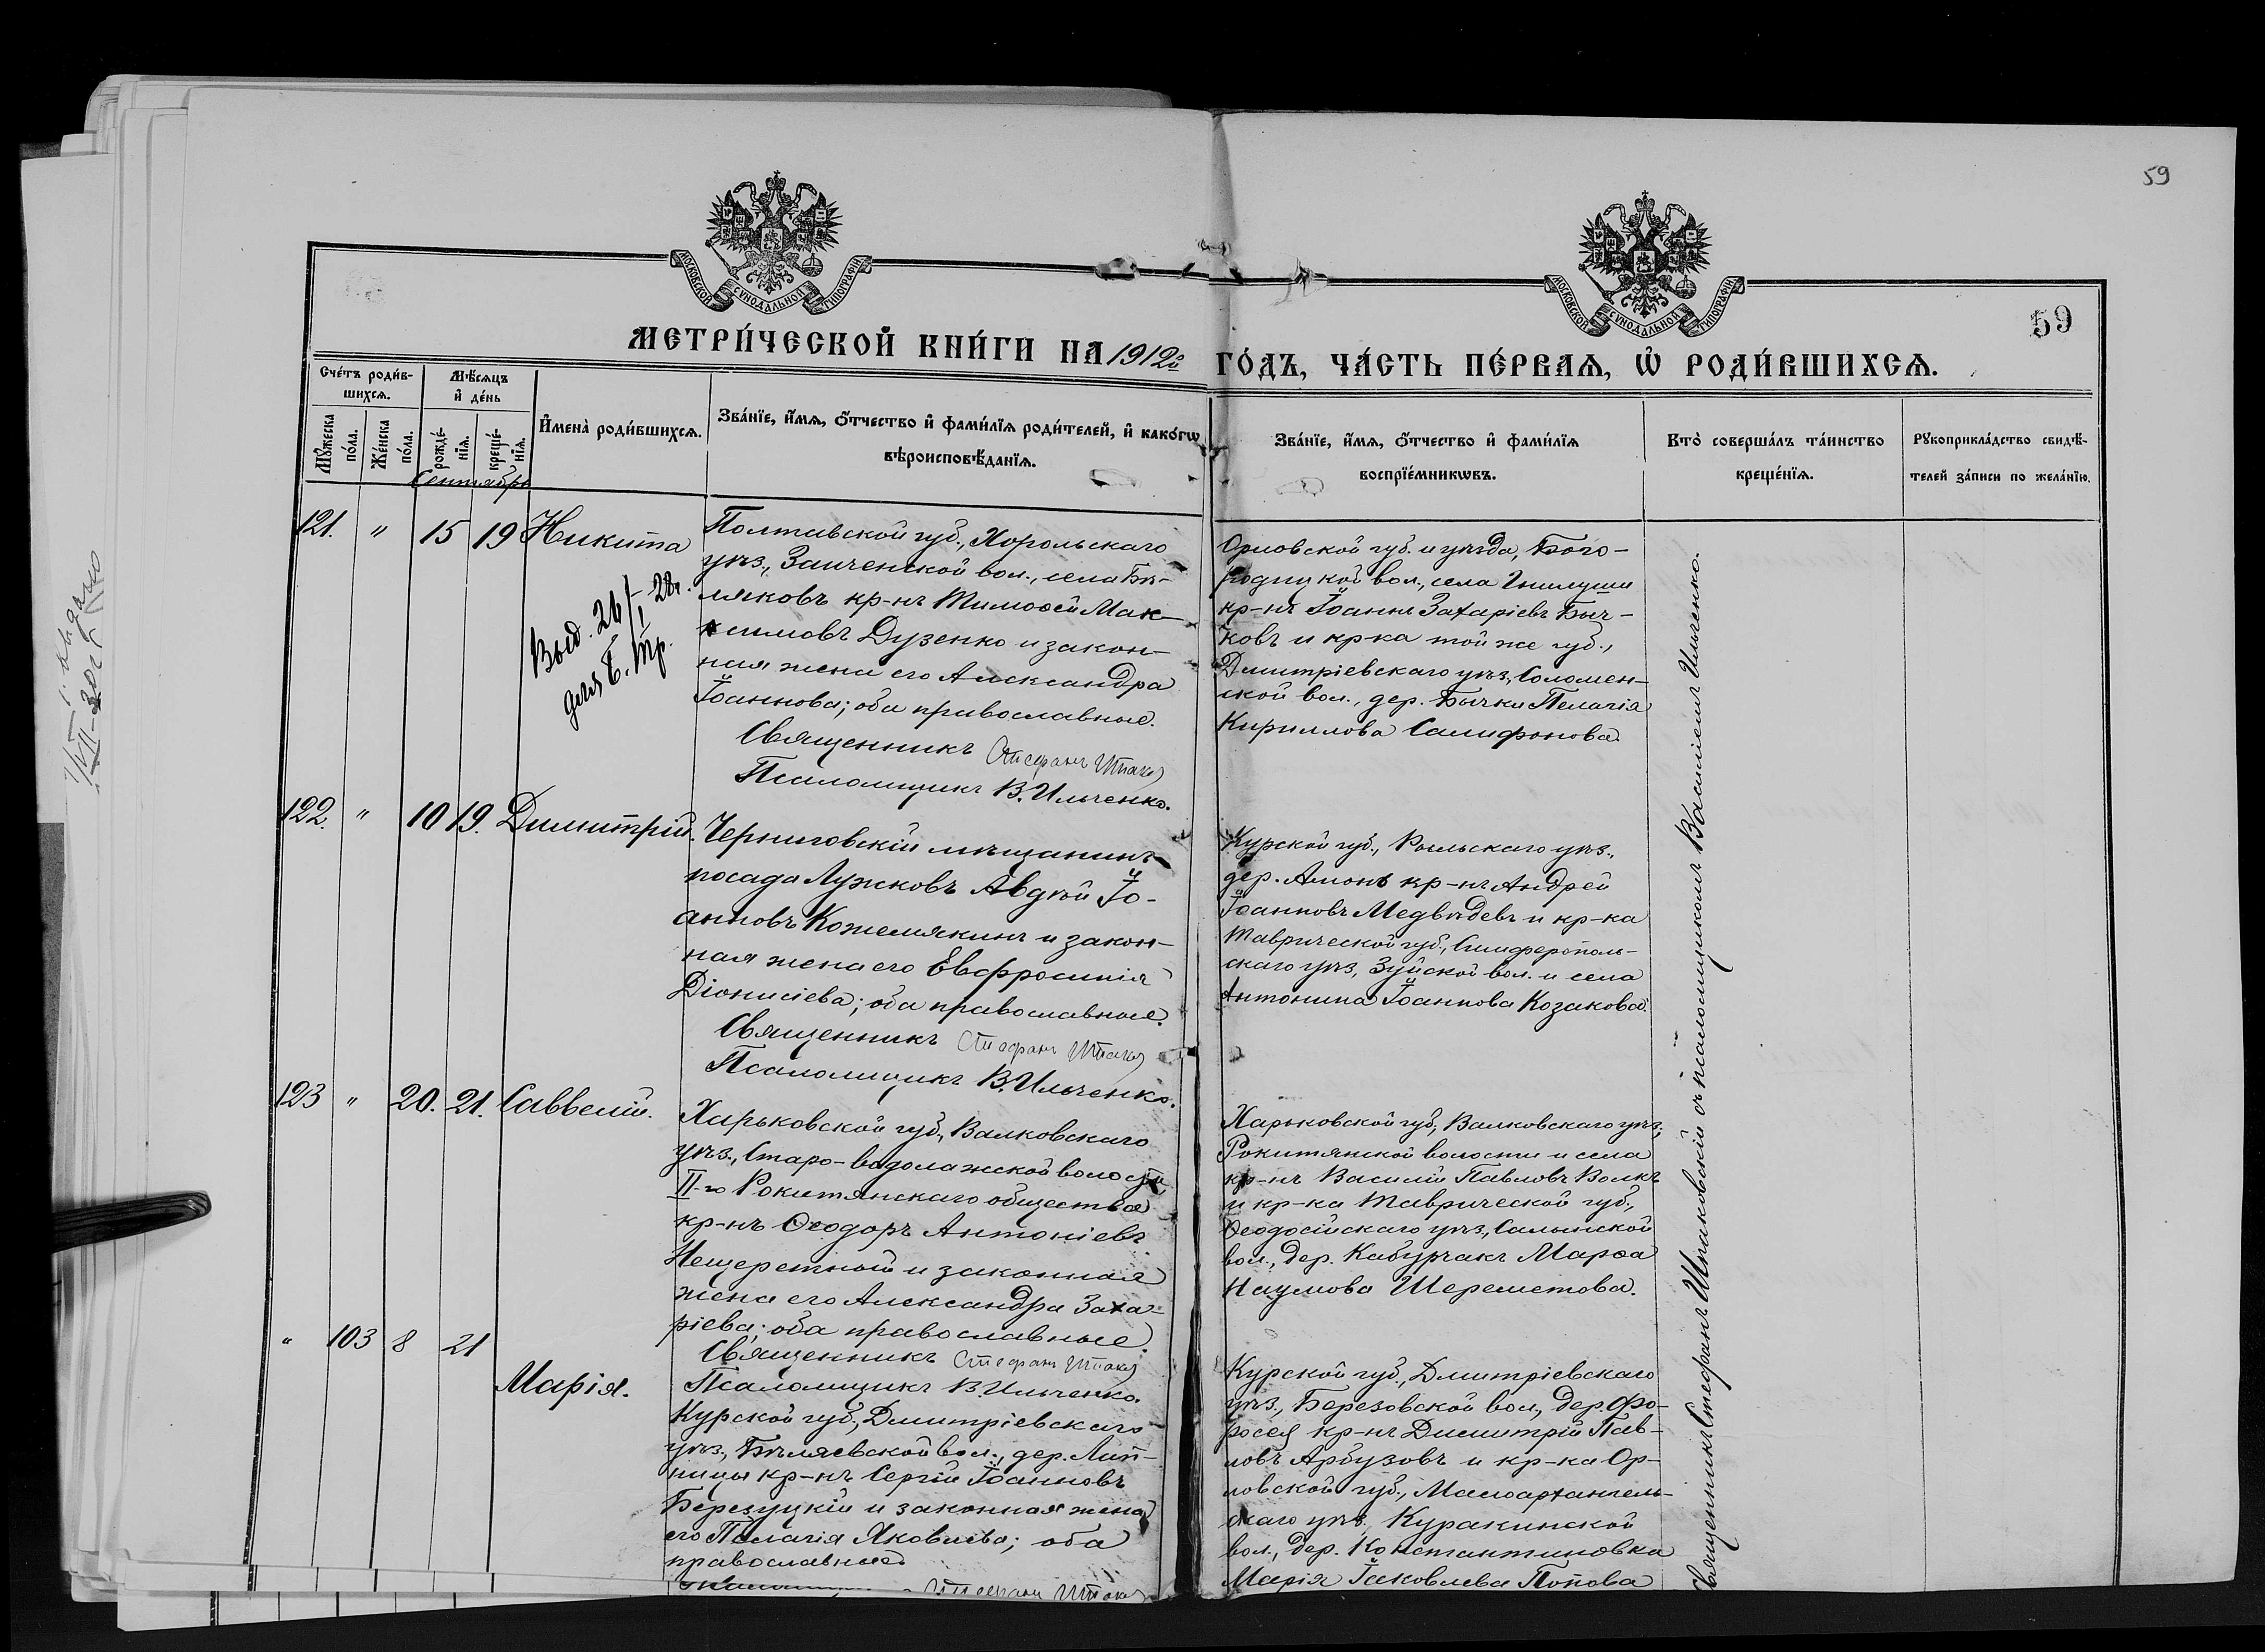 59
МОСКОВСКОЙ СУНОДАЛЬНОЙ ТИПОГРАФІИ
МОСКОВСКОЙ СУНОДАЛЬНОЙ ТИПОГРАФІИ
59
МЕТРИ́ЧЕСКОЙ КНИ́ГИ НА 1912й ГО́ДЪ, ЧА́СТЬ ПЕ́РВАѦ, Ѡ҆ РОДИ́ВШИХСѦ.
Сче́тъ роди́в-
шихсѧ.
Мꙋ́жеска по́ла.
Же́нска по́ла.
Мѣ́сѧцъ
и҆ де́нь
рожде́-
нїѧ.
креще́-
нїѧ.
И҆мена̀ роди́вшихсѧ.
Зва́нїе, и҆́мѧ, ѻ҆́тчество и҆ фами́лїѧ роди́телей, и҆ како́гѡ
вѣроисповѣ́данїѧ.
Зва́нїе, и҆́мѧ, ѻ҆́тчество и҆ фами́лїѧ
воспрїе́мникѡвъ.
Кто̀ соверша́лъ та́инство
креще́нїѧ.
Рꙋкоприкла́дство свидѣ́-
телей за́писи по жела́нїю.
Сентябрь
121. " 15 19 Никита
Выд. 26/I 28г.
для б. тр.
Полтавской губ., Хорольскаго
уѣз., Заиченской вол., села Бѣ-
ляковъ кр-нъ Тимоѳей Мак-
симовъ Дузенко и закон-
ная жена его Александра
Іоаннова; оба православные.
Священникъ Стефанъ Шпак
Псаломщикъ В. Ильченко.
Орловской губ. и уѣзда, Бого-
родицкой вол., села Гнилуши
кр-нъ Іоаннъ Захаріевъ Быч-
ковъ и кр-ка той же губ.,
Дмитріевскаго уѣз., Соломен-
ской вол., дер. Бычки Пелагія
Кириллова Салифонова.
122. " 10 19. Димитрій.
Черниговскій мѣщанинъ
посада Лужковъ Авдѣй Іо-
анновъ Кожемякинъ и закон-
ная жена его Евфросинія
Діонисіева; оба православные.
Священникъ Стефанъ Шпак
Псаломщикъ В. Ильченко.
Курской губ., Рыльскаго уѣз.,
дер. Амонь кр-нъ Андрей
Іоанновъ Медвѣдевъ и кр-ка
Таврической губ., Симферополь-
скаго уѣз., Зуйской вол. и села
Антонина Іоаннова Козакова.
123 " 20. 21. Савватій.
Харьковской губ., Валковскаго
уѣз., Старо-водолажской волости
II-го Рокитянскаго общества
кр-нъ Ѳеодоръ Антоніевъ
Нещеретный и законная
жена его Александра Заха-
ріева; оба православные.
Священникъ Стефанъ Шпак
Псаломщикъ В. Ильченко.
Харьковской губ., Валковскаго уѣз.,
Рокитянской волости и села
кр-нъ Василій Павловъ Волкъ
и кр-ка Таврической губ.,
Ѳеодосійскаго уѣз., Салынской
вол., дер. Кабурчакъ Марѳа
Наумова Шереметова.
" 103 8 21 Марія.
Курской губ., Дмитріевскаго
уѣз., Бѣляевской вол., дер. Лип-
ницы кр-нъ Сергій Іоанновъ
Березуцкій и законная жена
его Пелагія Яковлева; оба
православные
Стефанъ Шпак
Курской губ., Дмитріевскаго
уѣз., Березовской вол., дер. Фо-
росея кр-нъ Димитрій Пав-
ловъ Арбузовъ и кр-ка Ор-
ловской губ., Малоархангель-
скаго уѣз. Куракинской
вол., дер. Константиновка
Марія Іаковлева Попова
Священникъ Стефанъ Шпаковскій съ псаломщикомъ Василіемъ Ильченко.